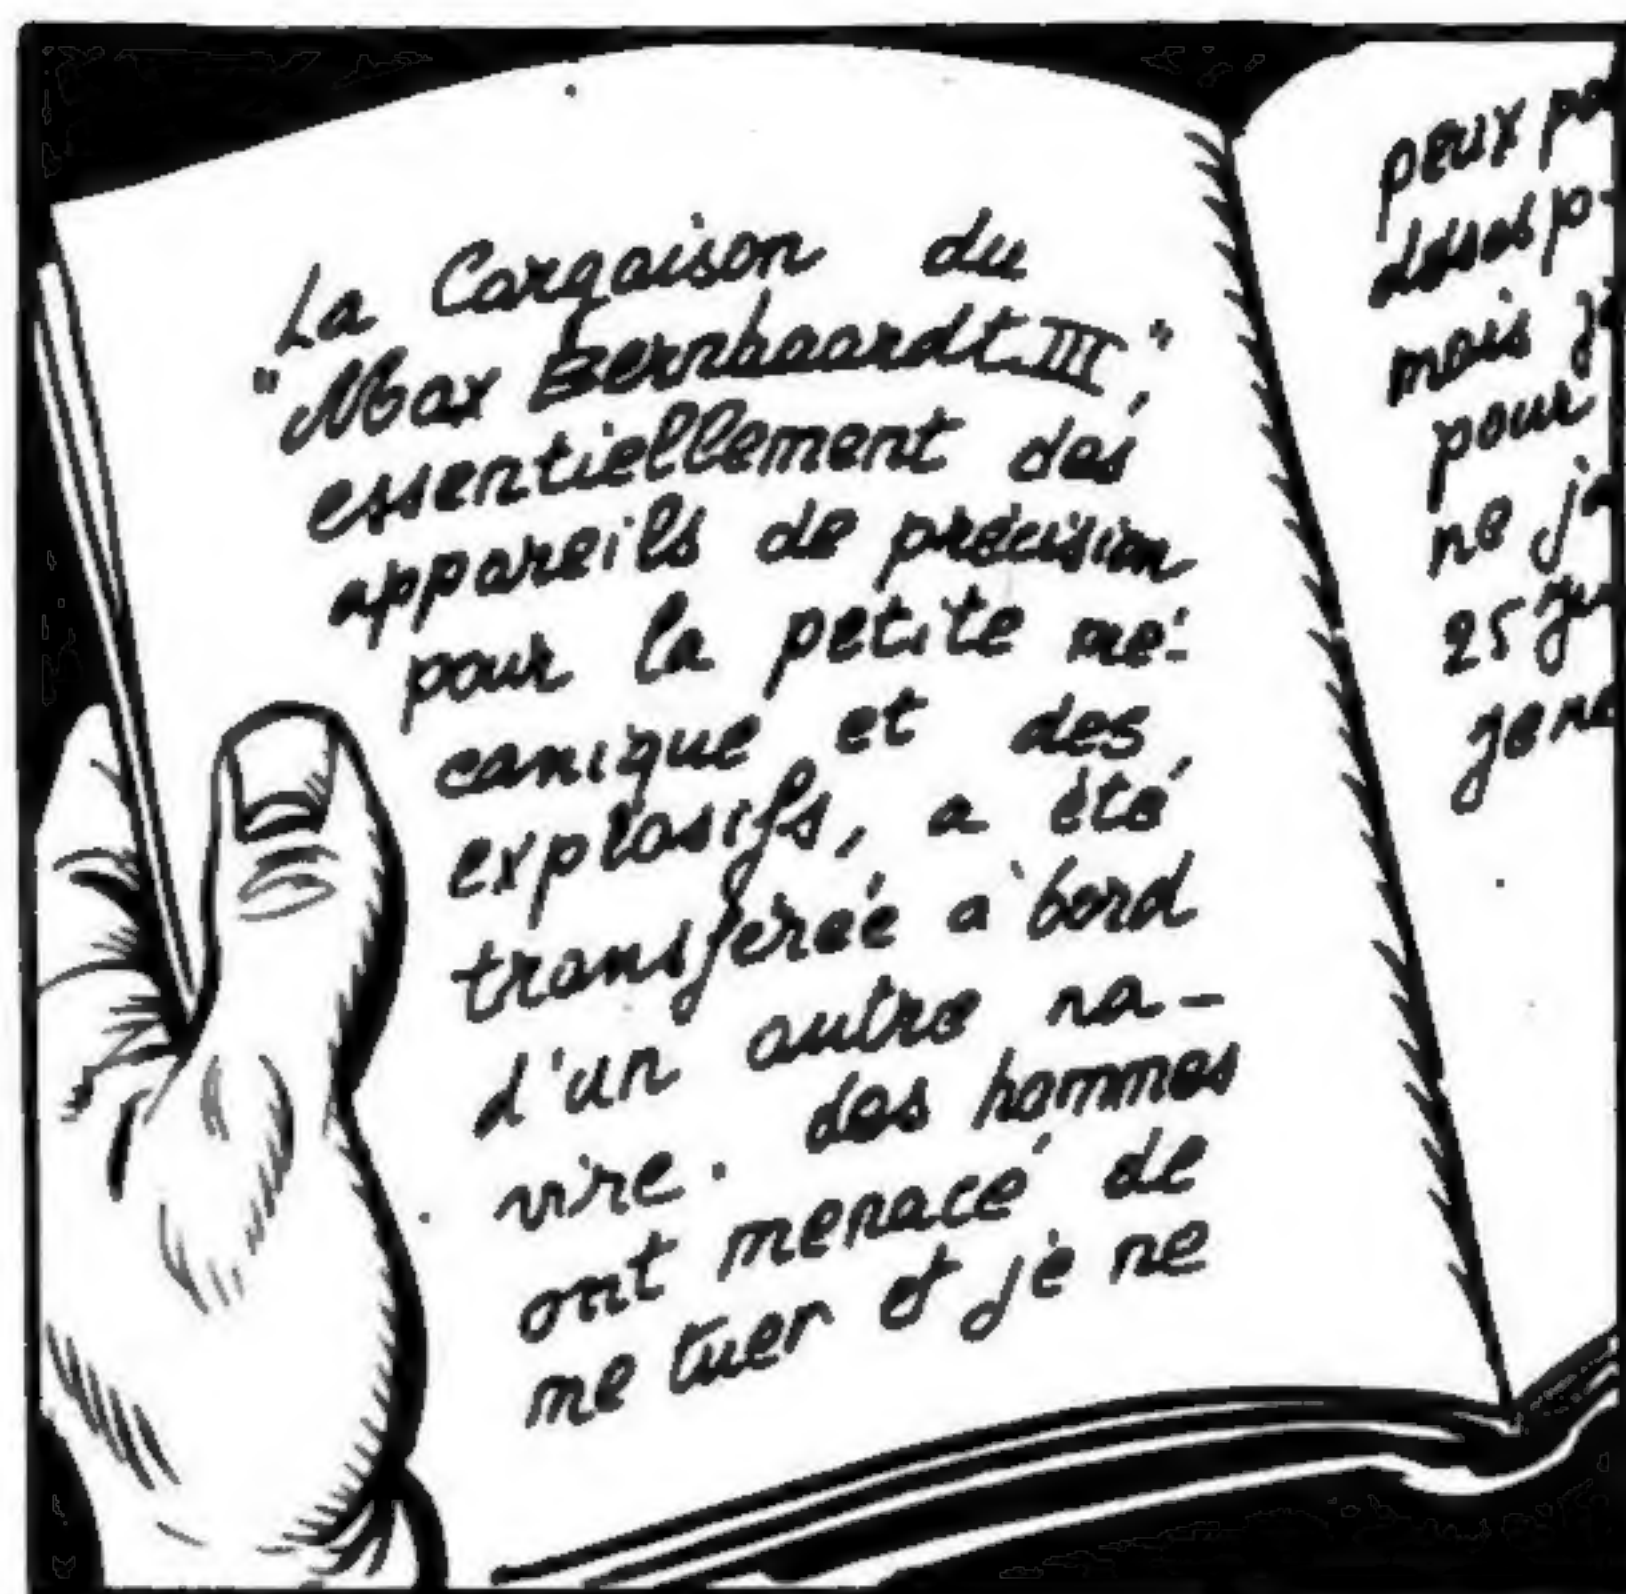 La Cargaison du
"Max Bernhaardt III,"
essentiellement des
appareils de précision
pour la petite mé-
canique et des
explosifs, a été
transférée à bord
d'un autre na-
vire. des hommes
ont menacé de
me tuer et je ne
peux
mais
pour
ne
25